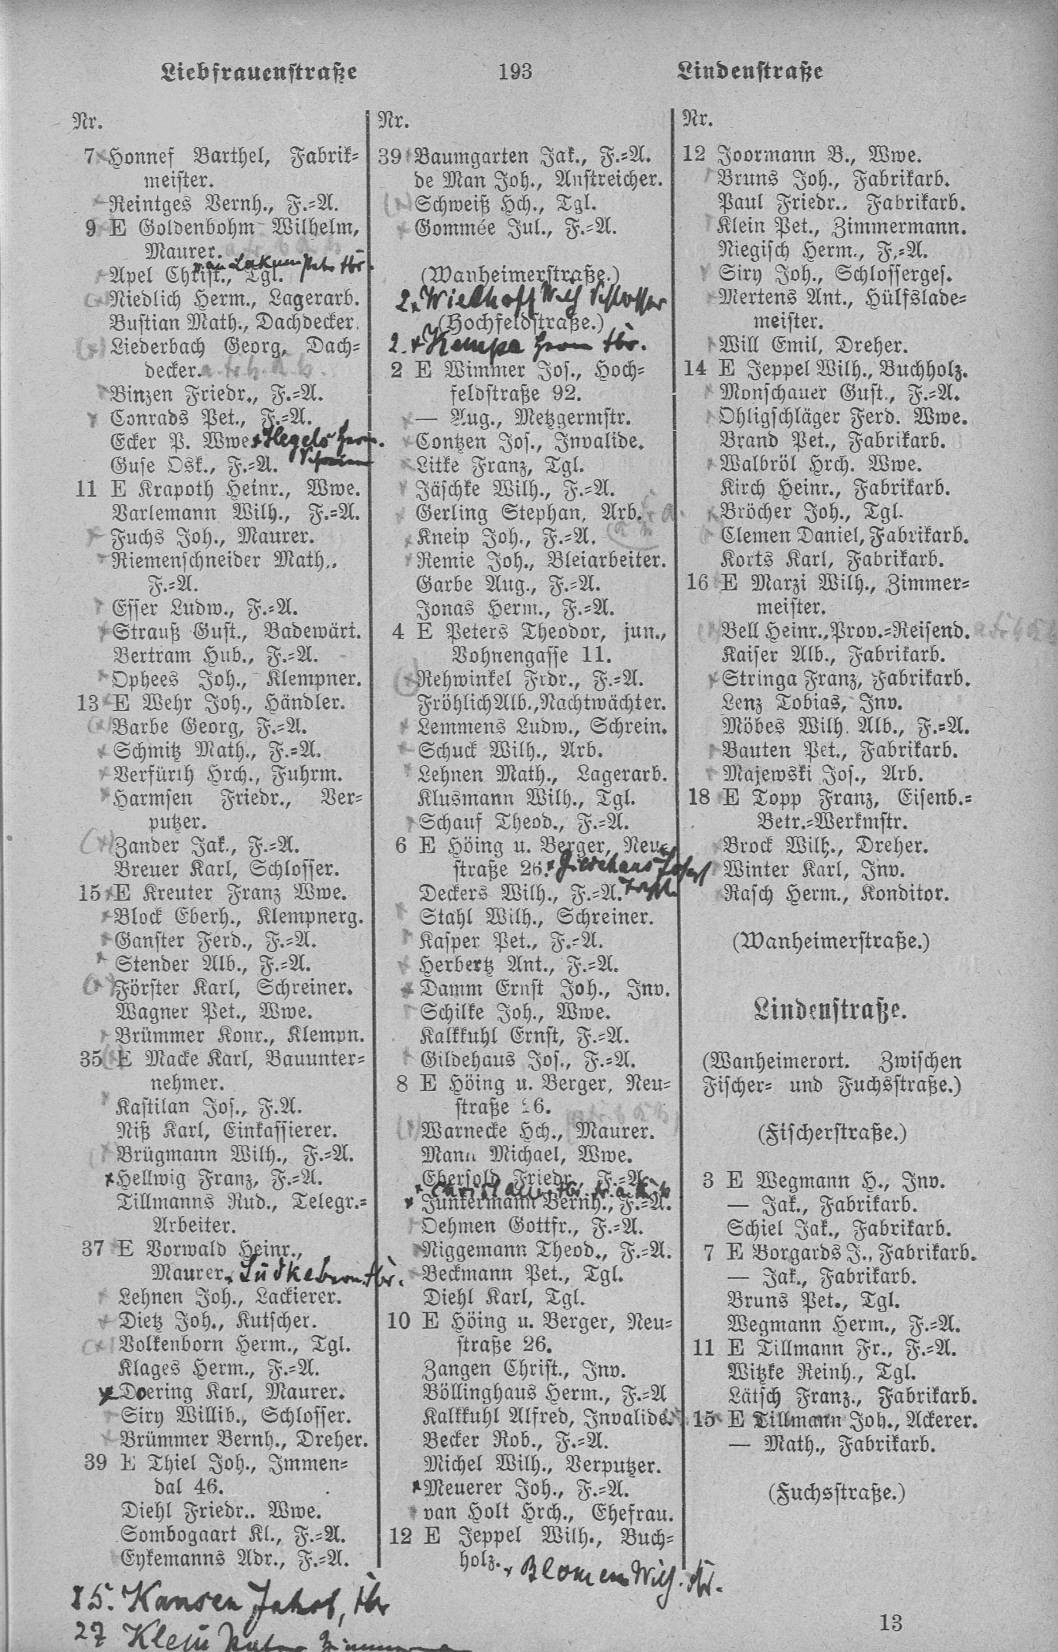 Liebfrauenstraße 193 Lindenstraße
Nr.
7 Honnef Barthel, Fabrik-
meister.
Reintges Bernh., F.-A.
9 E Goldenbohm Wilhelm,
Maurer.
Apel Christ., Tgl.
Niedlich Herm., Lagerarb.
Bustian Math., Dachdecker.
Liederbach Georg, Dach-
decker.
Binzen Friedr., F.-A.
Conrads Pet., F.-A.
Ecker P. Wwe. Hegels Herm.
Guse Osk., F.-A.
11 E Krapoth Heinr., Wwe.
Varlemann Wilh., F.-A.
Fuchs Joh., Maurer.
Riemenschneider Math.,
F.-A.
Esser Ludw., F.-A.
Strauß Gust., Badewärt.
Bertram Hub., F.-A.
Ophees Joh., Klempner.
13 E Wehr Joh., Händler.
Barbe Georg, F.-A.
Schmitz Math., F.-A.
Verfürth Hrch., Fuhrm.
Harmsen Friedr., Ver-
putzer.
Zander Jak., F.-A.
Breuer Karl, Schlosser.
15 E Kreuter Franz Wwe.
Block Eberh., Klempnerg.
Ganster Ferd., F.-A.
Stender Alb., F.-A.
Förster Karl, Schreiner.
Wagner Pet., Wwe.
Brümmer Konr., Klempn.
35 E Macke Karl, Bauunter-
nehmer.
Kastilan Jos., F.A.
Niß Karl, Einkassierer.
Brügmann Wilh., F.-A.
Hellwig Franz, F.-A.
Tillmanns Rud., Telegr.-
Arbeiter.
37 E Vorwald Heinr.,
Maurer.
Lehnen Joh., Lackierer.
Dietz Joh., Kutscher.
Volkenborn Herm., Tgl.
Klages Herm., F.-A.
Doering Karl, Maurer.
Siry Willib., Schlosser.
Brümmer Bernh., Dreher.
39 E Thiel Joh., Immen-
dal 46.
Diehl Friedr.. Wwe.
Sombogaart Kl., F.-A.
Eykemanns Adr., F.-A.
Nr.
39 Baumgarten Jak., F.-A.
de Man Joh., Anstreicher.
Schweiß Hch., Tgl.
Gommée Jul., F.-A.
(Wanheimerstraße.)
2 Wielhoff Wilh Schlosser
(Hochfeldstraße.)
2. Kempa Herm Arb.
2 E Wimmer Jos., Hoch-
feldstraße 92.
— Aug., Metzgermstr.
Contzen Jos., Invalide.
Litke Franz, Tgl.
Jäschke Wilh., F.-A.
Gerling Stephan, Arb.
Kneip Joh., F.-A.
Remie Joh., Bleiarbeiter.
Garbe Aug., F.-A.
Jonas Herm., F.-A.
4 E Peters Theodor, jun.,
Vohnengasse 11.
Rehwinkel Frdr., F.-A.
Fröhlich Alb., Nachtwächter.
Lemmens Ludw., Schrein.
Schuck Wilh., Arb.
Lehnen Math., Lagerarb.
Klusmann Wilh., Tgl.
Schauf Theod., F.-A.
6 E Höing u. Berger, Neu-
straße 26.
Deckers Wilh., F.-A.
Stahl Wilh., Schreiner.
Kasper Pet., F.-A.
Herbertz Ant., F.-A.
Damm Ernst Joh., Inv.
Schilke Joh., Wwe.
Kalkkuhl Ernst, F.-A.
Gildehaus Jos., F.-A.
8 E Höing u. Berger, Neu-
straße 26.
Warnecke Hch., Maurer.
Mann Michael, Wwe.
Ebersold Friedr., F.-A.
Junkermann Bernh., F.-A.
Oehmen Gottfr., F.-A.
Niggemann Theod., F.-A.
Beckmann Pet., Tgl.
Diehl Karl, Tgl.
10 E Höing u. Berger, Neu-
straße 26.
Zangen Christ., Inv.
Böllinghaus Herm., F.-A
Kalkkuhl Alfred, Invalide.
Becker Rob., F.-A.
Michel Wilh., Verputzer.
Meuerer Joh., F.-A.
van Holt Hrch., Ehefrau.
12 E Jeppel Wilh., Buch-
holz. Blomen Wilh. Arb.
Nr.
12 Joormann B., Wwe.
Bruns Joh., Fabrikarb.
Paul Friedr.. Fabrikarb.
Klein Pet., Zimmermann.
Niegisch Herm., F.-A.
Siry Joh., Schlosserges.
Mertens Ant., Hülfslade-
meister.
Will Emil, Dreher.
14 E Jeppel Wilh., Buchholz.
Monschauer Gust., F.-A.
Ohligschläger Ferd. Wwe.
Brand Pet., Fabrikarb.
Walbröl Hrch. Wwe.
Kirch Heinr., Fabrikarb.
Bröcher Joh., Tgl.
Clemen Daniel, Fabrikarb.
Korts Karl, Fabrikarb.
16 E Marzi Wilh., Zimmer-
meister.
Bell Heinr., Prov.-Reisend.
Kaiser Alb., Fabrikarb.
Stringa Franz, Fabrikarb.
Lenz Tobias, Inv.
Möbes Wilh. Alb., F.-A.
Bauten Pet., Fabrikarb.
Majewski Jos., Arb.
18 E Topp Franz, Eisenb.-
Betr.-Werkmstr.
Brock Wilh., Dreher.
Winter Karl, Inv.
Rasch Herm., Konditor.
(Wanheimerstraße.)
Lindenstraße.
(Wanheimerort. Zwischen
Fischer- und Fuchsstraße.)
(Fischerstraße.)
3 E Wegmann H., Inv.
— Jak., Fabrikarb.
Schiel Jak., Fabrikarb.
7 E Borgards J., Fabrikarb.
— Jak., Fabrikarb.
Bruns Pet., Tgl.
Wegmann Herm., F.-A.
11 E Tillmann Fr., F.-A.
Witzke Reinh., Tgl.
Lätsch Franz., Fabrikarb.
15 E Tillmann Joh., Ackerer.
— Math., Fabrikarb.
(Fuchsstraße.)
13
85. Kansen Jakob, Arb
27 Klein